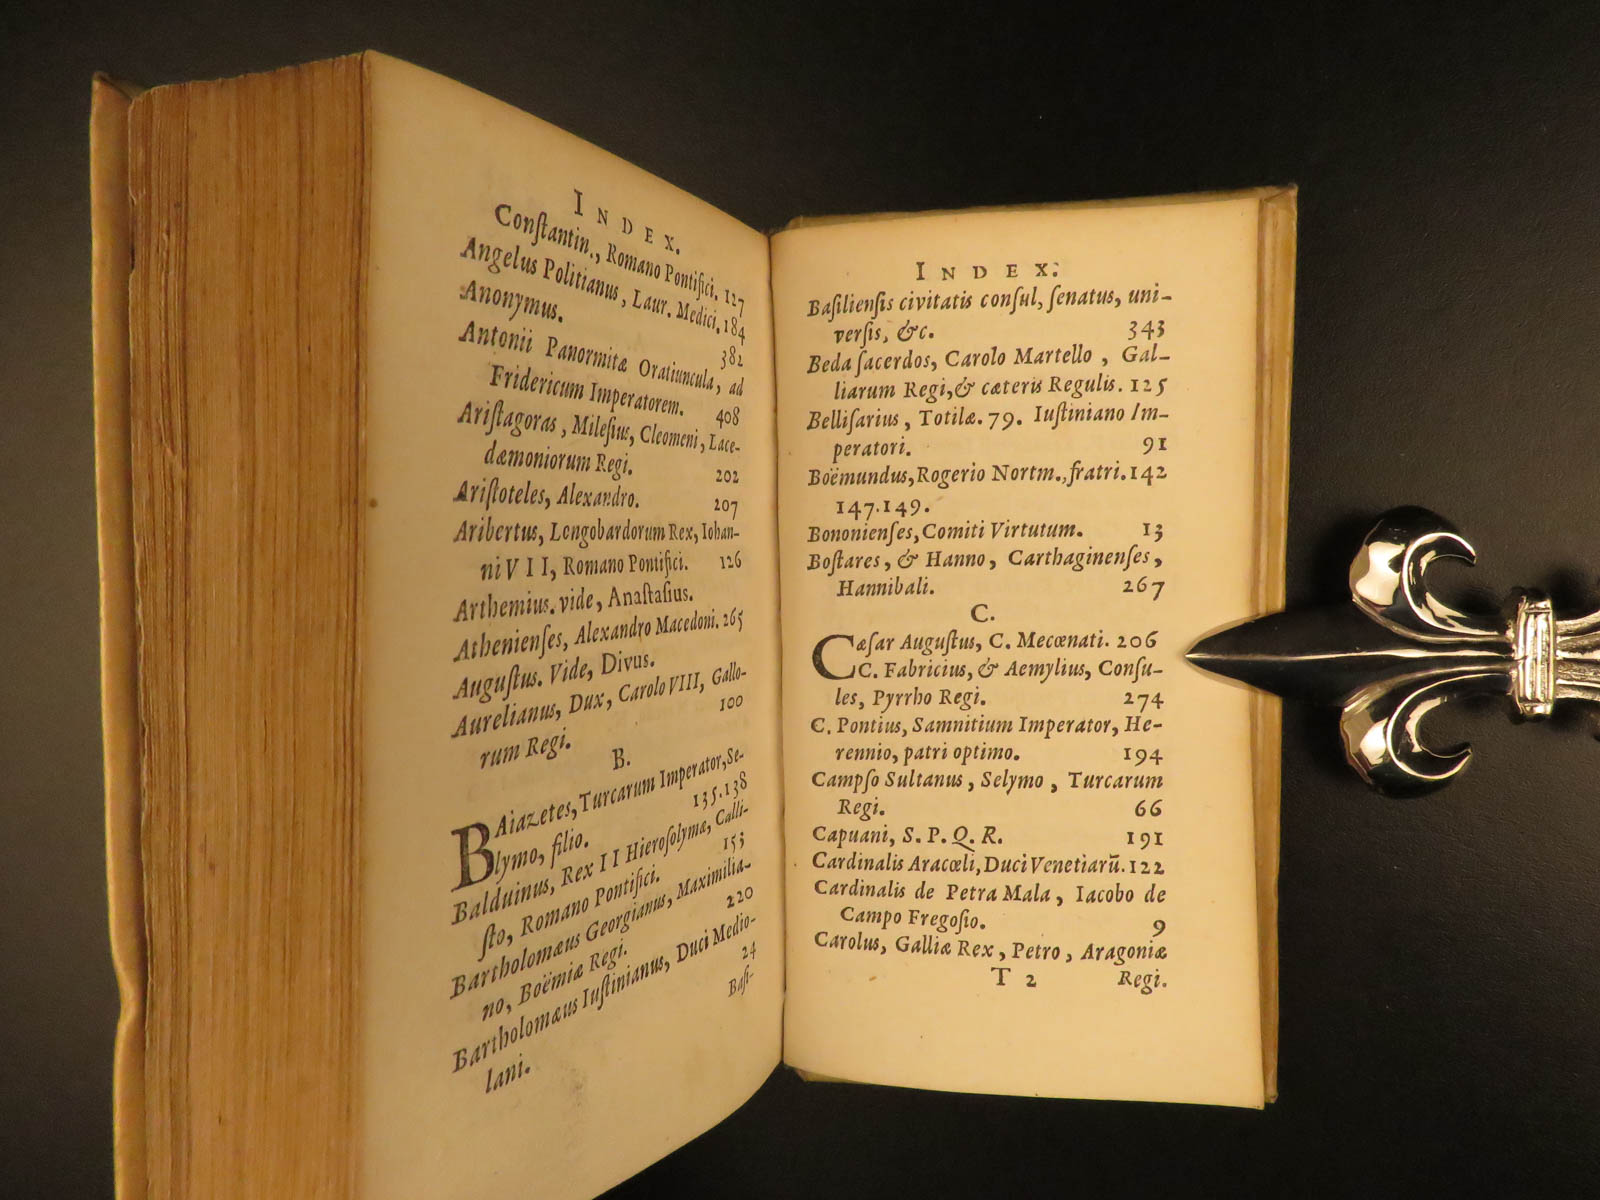 INDEX.
Conſtantin., Romano Pontifici. 127
Angelus Politianus, Laur. Medici. 184
Anonymus. 382
Antonii Panormitæ Oratiuncula, ad
Fridericum Imperatorem. 408
Ariſtagoras, Mileſius, Cleomeni, Lace-
dæmoniorum Regi. 202
Ariſtoteles, Alexandro. 207
Aribertus, Longobardorum Rex, Iohan-
ni VII, Romano Pontifici. 126
Arthemius. vide, Anaſtaſius.
Athenienſes, Alexandro Macedoni. 265
Auguſtus. Vide, Divus.
Aurelianus, Dux, Carolo VIII, Gallo-
rum Regi. 100
B.
BAiazetes, Turcarum Imperator, Se-
lymo, filio. 135.138
Balduinus, Rex II Hieroſolymæ, Calli-
ſto, Romano Pontifici. 153
Bartholomæus Georgianus, Maximilia-
no, Boëmiæ Regi. 220
Bartholomæus Iuſtinianus, Duci Medio-
lani. 24
Baſi-
INDEX.
Baſilienſis civitatis conſul, ſenatus, uni-
verſis, &c. 343
Beda ſacerdos, Carolo Martello, Gal-
liarum Regi, & cæteris Regulis. 125
Belliſarius, Totilæ. 79. Iuſtiniano Im-
peratori. 91
Boëmundus, Rogerio Nortm., fratri. 142
147.149.
Bononienſes, Comiti Virtutum. 13
Boſtares, & Hanno, Carthaginenſes,
Hannibali. 267
C.
Cæſar Auguſtus, C. Mecœnati. 206
C. Fabricius, & Aemylius, Conſu-
les, Pyrrho Regi. 274
C. Pontius, Samnitium Imperator, He-
rennio, patri optimo. 194
Campſo Sultanus, Selymo, Turcarum
Regi. 66
Capuani, S. P. Q. R. 191
Cardinalis Aracœli, Duci Venetiarū. 122
Cardinalis de Petra Mala, Iacobo de
Campo Fregoſio. 9
Carolus, Galliæ Rex, Petro, Aragoniæ
T 2 Regi.